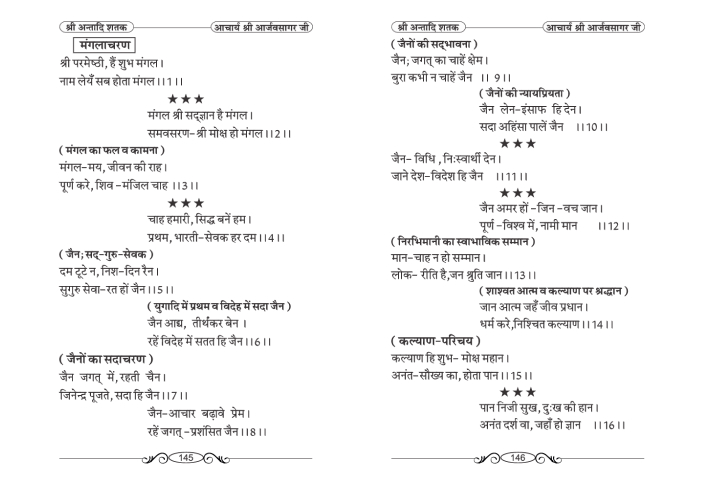 श्री अन्तादि शतक
आचार्य श्री आर्जवसागर जी
मंगलाचरण
श्री परमेष्ठी, हैं शुभ मंगल।
नाम लेयँ सब होता मंगल।।1।।
★★★
मंगल श्री सद्ज्ञान है मंगल।
समवसरण-श्री मोक्ष हो मंगल।।2।।
( मंगल का फल व कामना )
मंगल-मय, जीवन की राह।
पूर्ण करे, शिव -मंजिल चाह ।।3।।
★★★
चाह हमारी, सिद्ध बनें हम।
प्रथम, भारती-सेवक हर दम।।4।।
( जैन; सद्-गुरु-सेवक )
दम टूटे न, निश-दिन रैन।
सुगुरु सेवा-रत हों जैन।।5।।
( युगादि में प्रथम व विदेह में सदा जैन )
जैन आद्य, तीर्थंकर बेन ।
रहें विदेह में सतत हि जैन।।6।।
( जैनों का सदाचरण )
जैन जगत् में, रहती चैन।
जिनेन्द्र पूजते, सदा हि जैन।।7।।
जैन-आचार बढ़ावे प्रेम।
रहें जगत् -प्रशंसित जैन।।8।।
145
श्री अन्तादि शतक
आचार्य श्री आर्जवसागर जी
( जैनों की सद्भावना )
जैन; जगत् का चाहें क्षेम।
बुरा कभी न चाहें जैन ।। 9।।
( जैनों की न्यायप्रियता )
जैन लेन-इंसाफ हि देन।
सदा अहिंसा पालें जैन ।।10।।
★★★
जैन- विधि , नि:स्वार्थी देन।
जाने देश-विदेश हि जैन ।।11।।
★★★
जैन अमर हों -जिन -वच जान।
पूर्ण -विश्व में, नामी मान ।।12।।
( निरभिमानी का स्वाभाविक सम्मान )
मान-चाह न हो सम्मान।
लोक- रीति है,जन श्रुति जान।।13।।
( शाश्वत आत्म व कल्याण पर श्रद्धान )
जान आत्म जहँ जीव प्रधान।
धर्म करे,निश्चित कल्याण।।14।।
( कल्याण-परिचय )
कल्याण हि शुभ- मोक्ष महान।
अनंत-सौख्य का, होता पान।।15।।
★★★
पान निजी सुख, दु:ख की हान।
अनंत दर्श वा, जहाँ हो ज्ञान ।।16।।
146